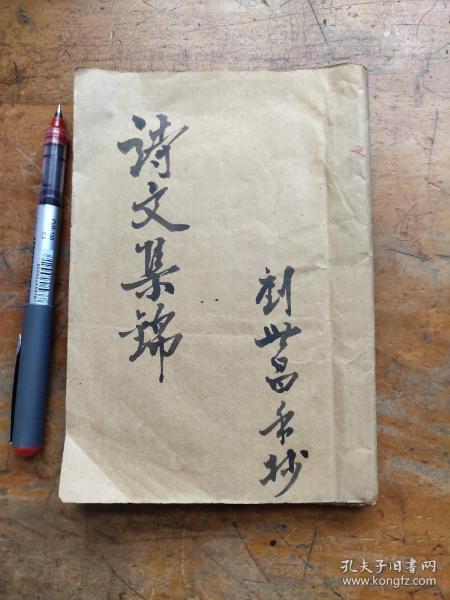 詩文集錦
劉世昌手抄
孔夫子旧书网
www.kongfz.com